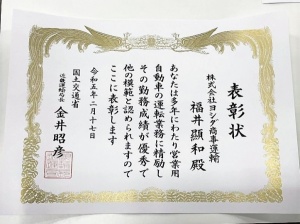 表彰状
株式会社ヨシダ商事運輸
福井顯和殿
あなたは多年にわたり営業用
自動車の運転業務に精励し
その勤務成績が優秀で
他の模範と認められますので
ここに表彰します
令和五年二月十七日
国土交通省
近畿運輸局長
金井昭彦